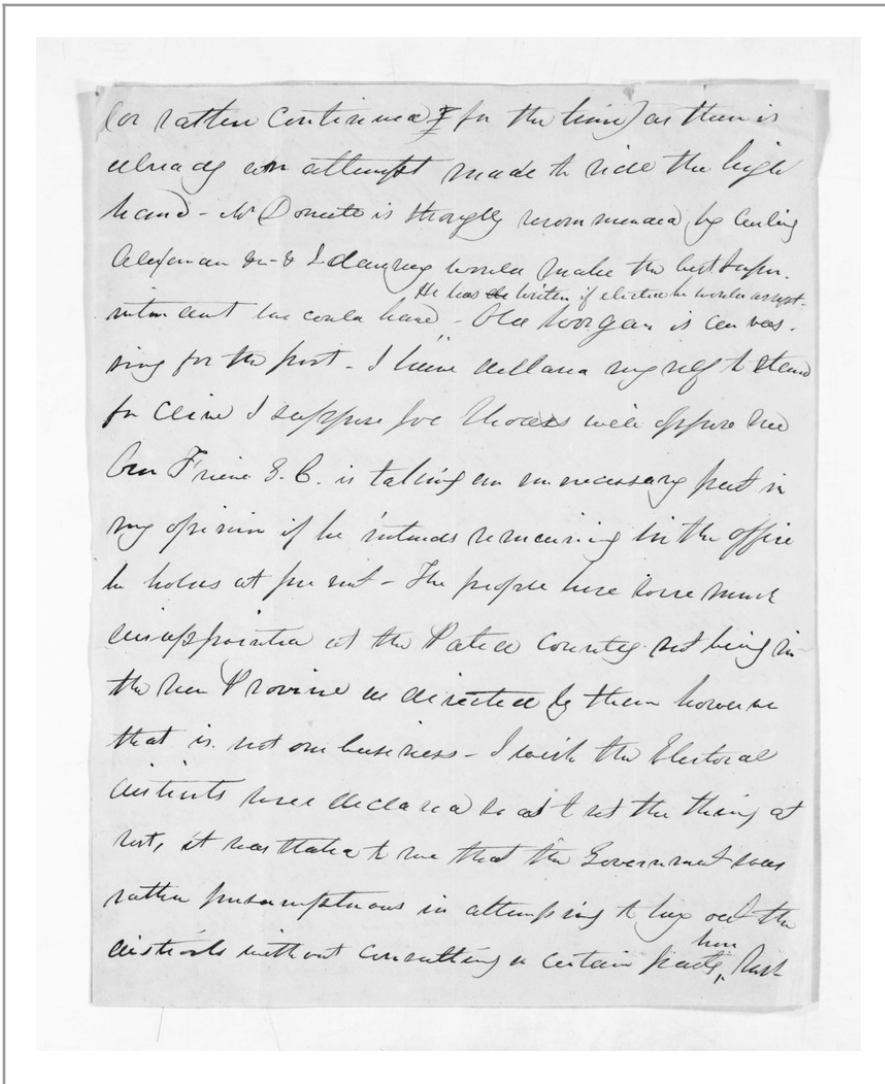 (or rather continued for the time) as there is
already an attempt made to ride the high
hand - Mr is strongly recommended by Curling
Alexander &c - & I daresay would make the best Super.
He has written if elected he would accept -
intendent we could have - Old Morgan is canvas.
sing for the post - I have declared myself to stand
for Clive I suppose Joe Rhodes will oppose me
Our Friend S. C. is taking an unnecessary part in
my opinion if he intends remaining in the office
he holds at present - The people here some much
disappointed at the Patea County not being in
the new Province as directed by them however
that is not our business - I wish the Electoral
districts were declared so as to set the thing at
rest, it was stated to me that the Government was
rather presumptuous in attempting to lay out the
districts without consulting a certain party here,